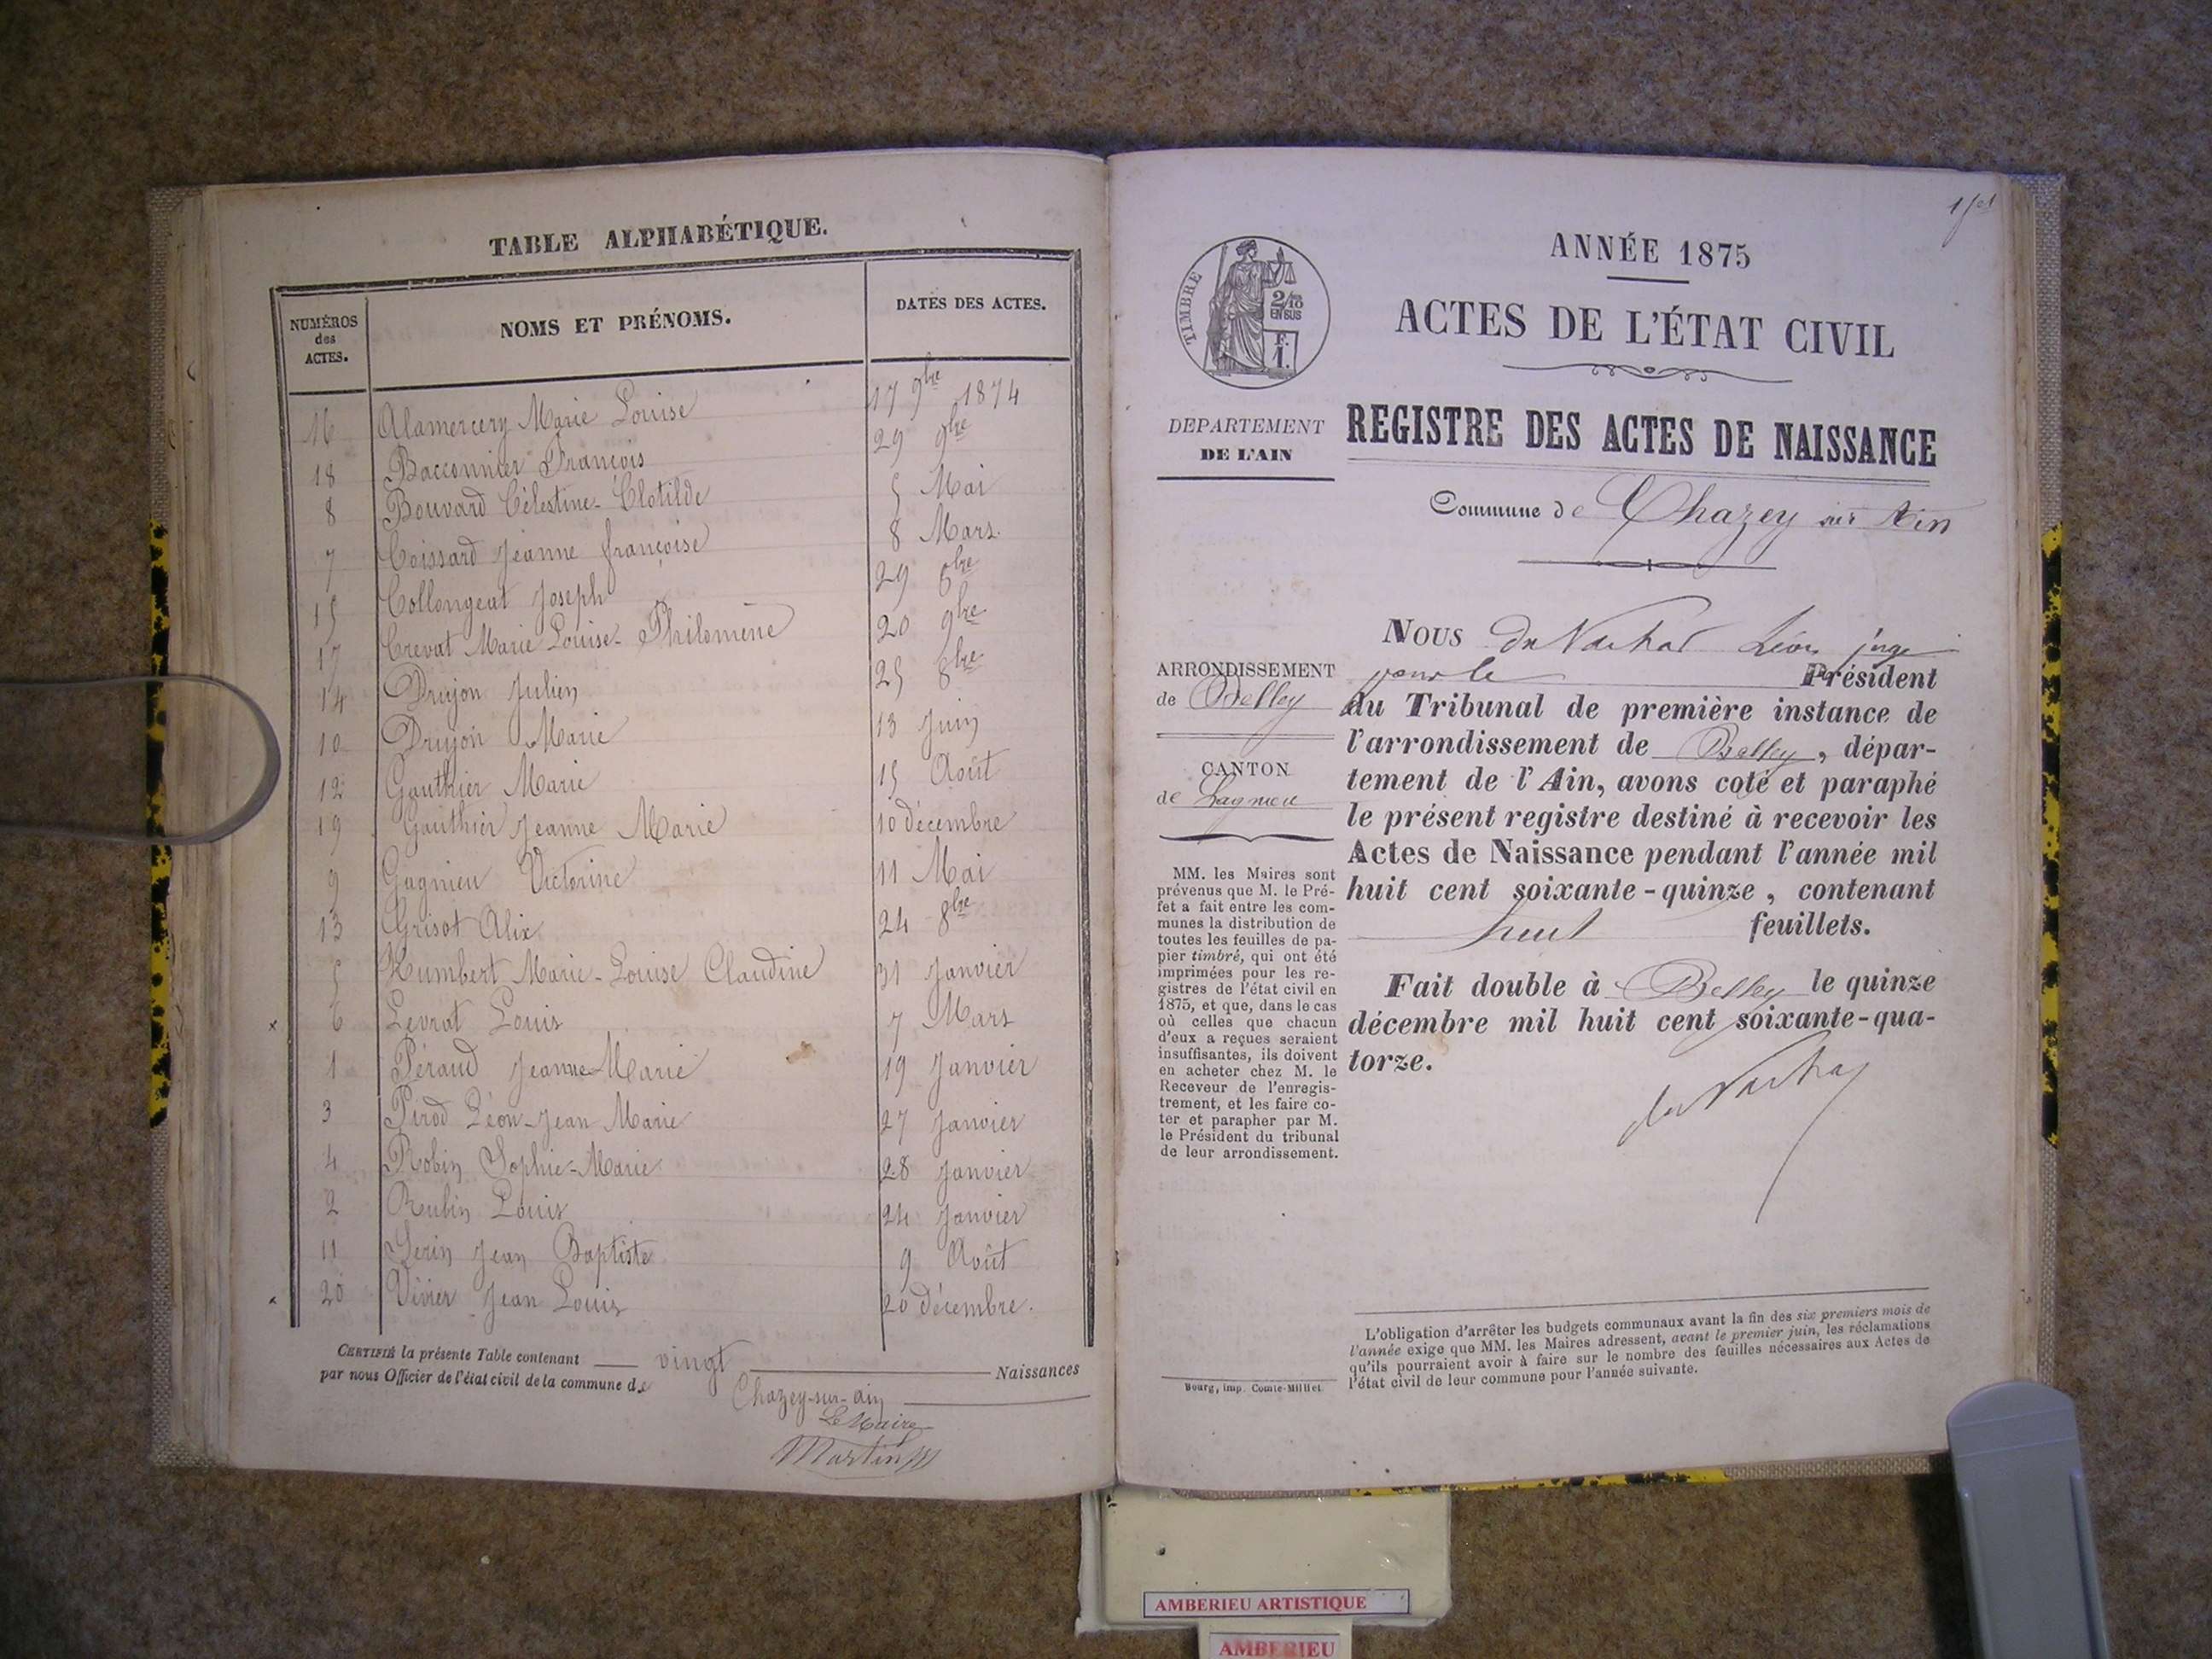 TABLE ALPHABÉTIQUE.
NUMÉROS des ACTES. NOMS ET PRÉNOMS. DATES DES ACTES.
16 Alamercery Marie Louise 17 9bre 1874
18 Bacconnier François 29 9bre
8 Bouvard Célestine-Clotilde 5 Mai
7 Coissard Jeanne françoise 8 Mars.
15 Collongeat Joseph 29 8bre
17 Crevat Marie Louise-Philomène 20 9bre
14 Drujon Julien 25 8bre
10 Drujon Marie 13 Juin
12 Gauthier Marie 15 Août
19 Gauthier Jeanne Marie 10 décembre
9 Gagnieu Victorine 11 Mai
13 Grisot Alix 24 8bre
5 Humbert Marie-Louise Claudine 31 Janvier
x 6 Levrat Louis 7 Mars
1 Péraud Jeanne-Marie 19 Janvier
3 Pirod Léon-Jean Marie 27 Janvier
4 Robin Sophie-Marie 28 Janvier
2 Rubin Louis 24 Janvier
11 Serin Jean Baptiste 9 Août
20 Vivier Jean Louis 20 décembre.
CERTIFIÉ la présente Table contenant vingt Naissances
par nous Officier de l'état civil de la commune de
Chazey-sur-ain
Le Maire
Martin
1 fet
ANNÉE 1875
ACTES DE L'ÉTAT CIVIL
TIMBRE
2/10
EN SUS
F.
1.
DEPARTEMENT
DE L'AIN
REGISTRE DES ACTES DE NAISSANCE
Commune de Chazey sur Ain
ARRONDISSEMENT
de Belley
CANTON
de Lagnieu
MM. les Maires sont
prévenus que M. le Pré-
fet a fait entre les com-
munes la distribution de
toutes les feuilles de pa-
pier timbré, qui ont été
imprimées pour les re-
gistres de l'état civil en
1875, et que, dans le cas
où celles que chacun
d'eux a reçues seraient
insuffisantes, ils doivent
en acheter chez M. le
Receveur de l'enregis-
trement, et les faire co-
ter et parapher par M.
le Président du tribunal
de leur arrondissement.
Bourg, imp. Comte-Milliet.
NOUS Léon juge
pour le Président
du Tribunal de première instance de
l'arrondissement de Belley, dépar-
tement de l'Ain, avons coté et paraphé
le présent registre destiné à recevoir les
Actes de Naissance pendant l'année mil
huit cent soixante-quinze, contenant
huit feuillets.
Fait double à Belley le quinze
décembre mil huit cent soixante-qua-
torze.
L'obligation d'arrêter les budgets communaux avant la fin des six premiers mois de
l'année exige que MM. les Maires adressent, avant le premier juin, les réclamations
qu'ils pourraient avoir à faire sur le nombre des feuilles nécessaires aux Actes de
l'état civil de leur commune pour l'année suivante.
AMBERIEU ARTISTIQUE
AMBERIEU